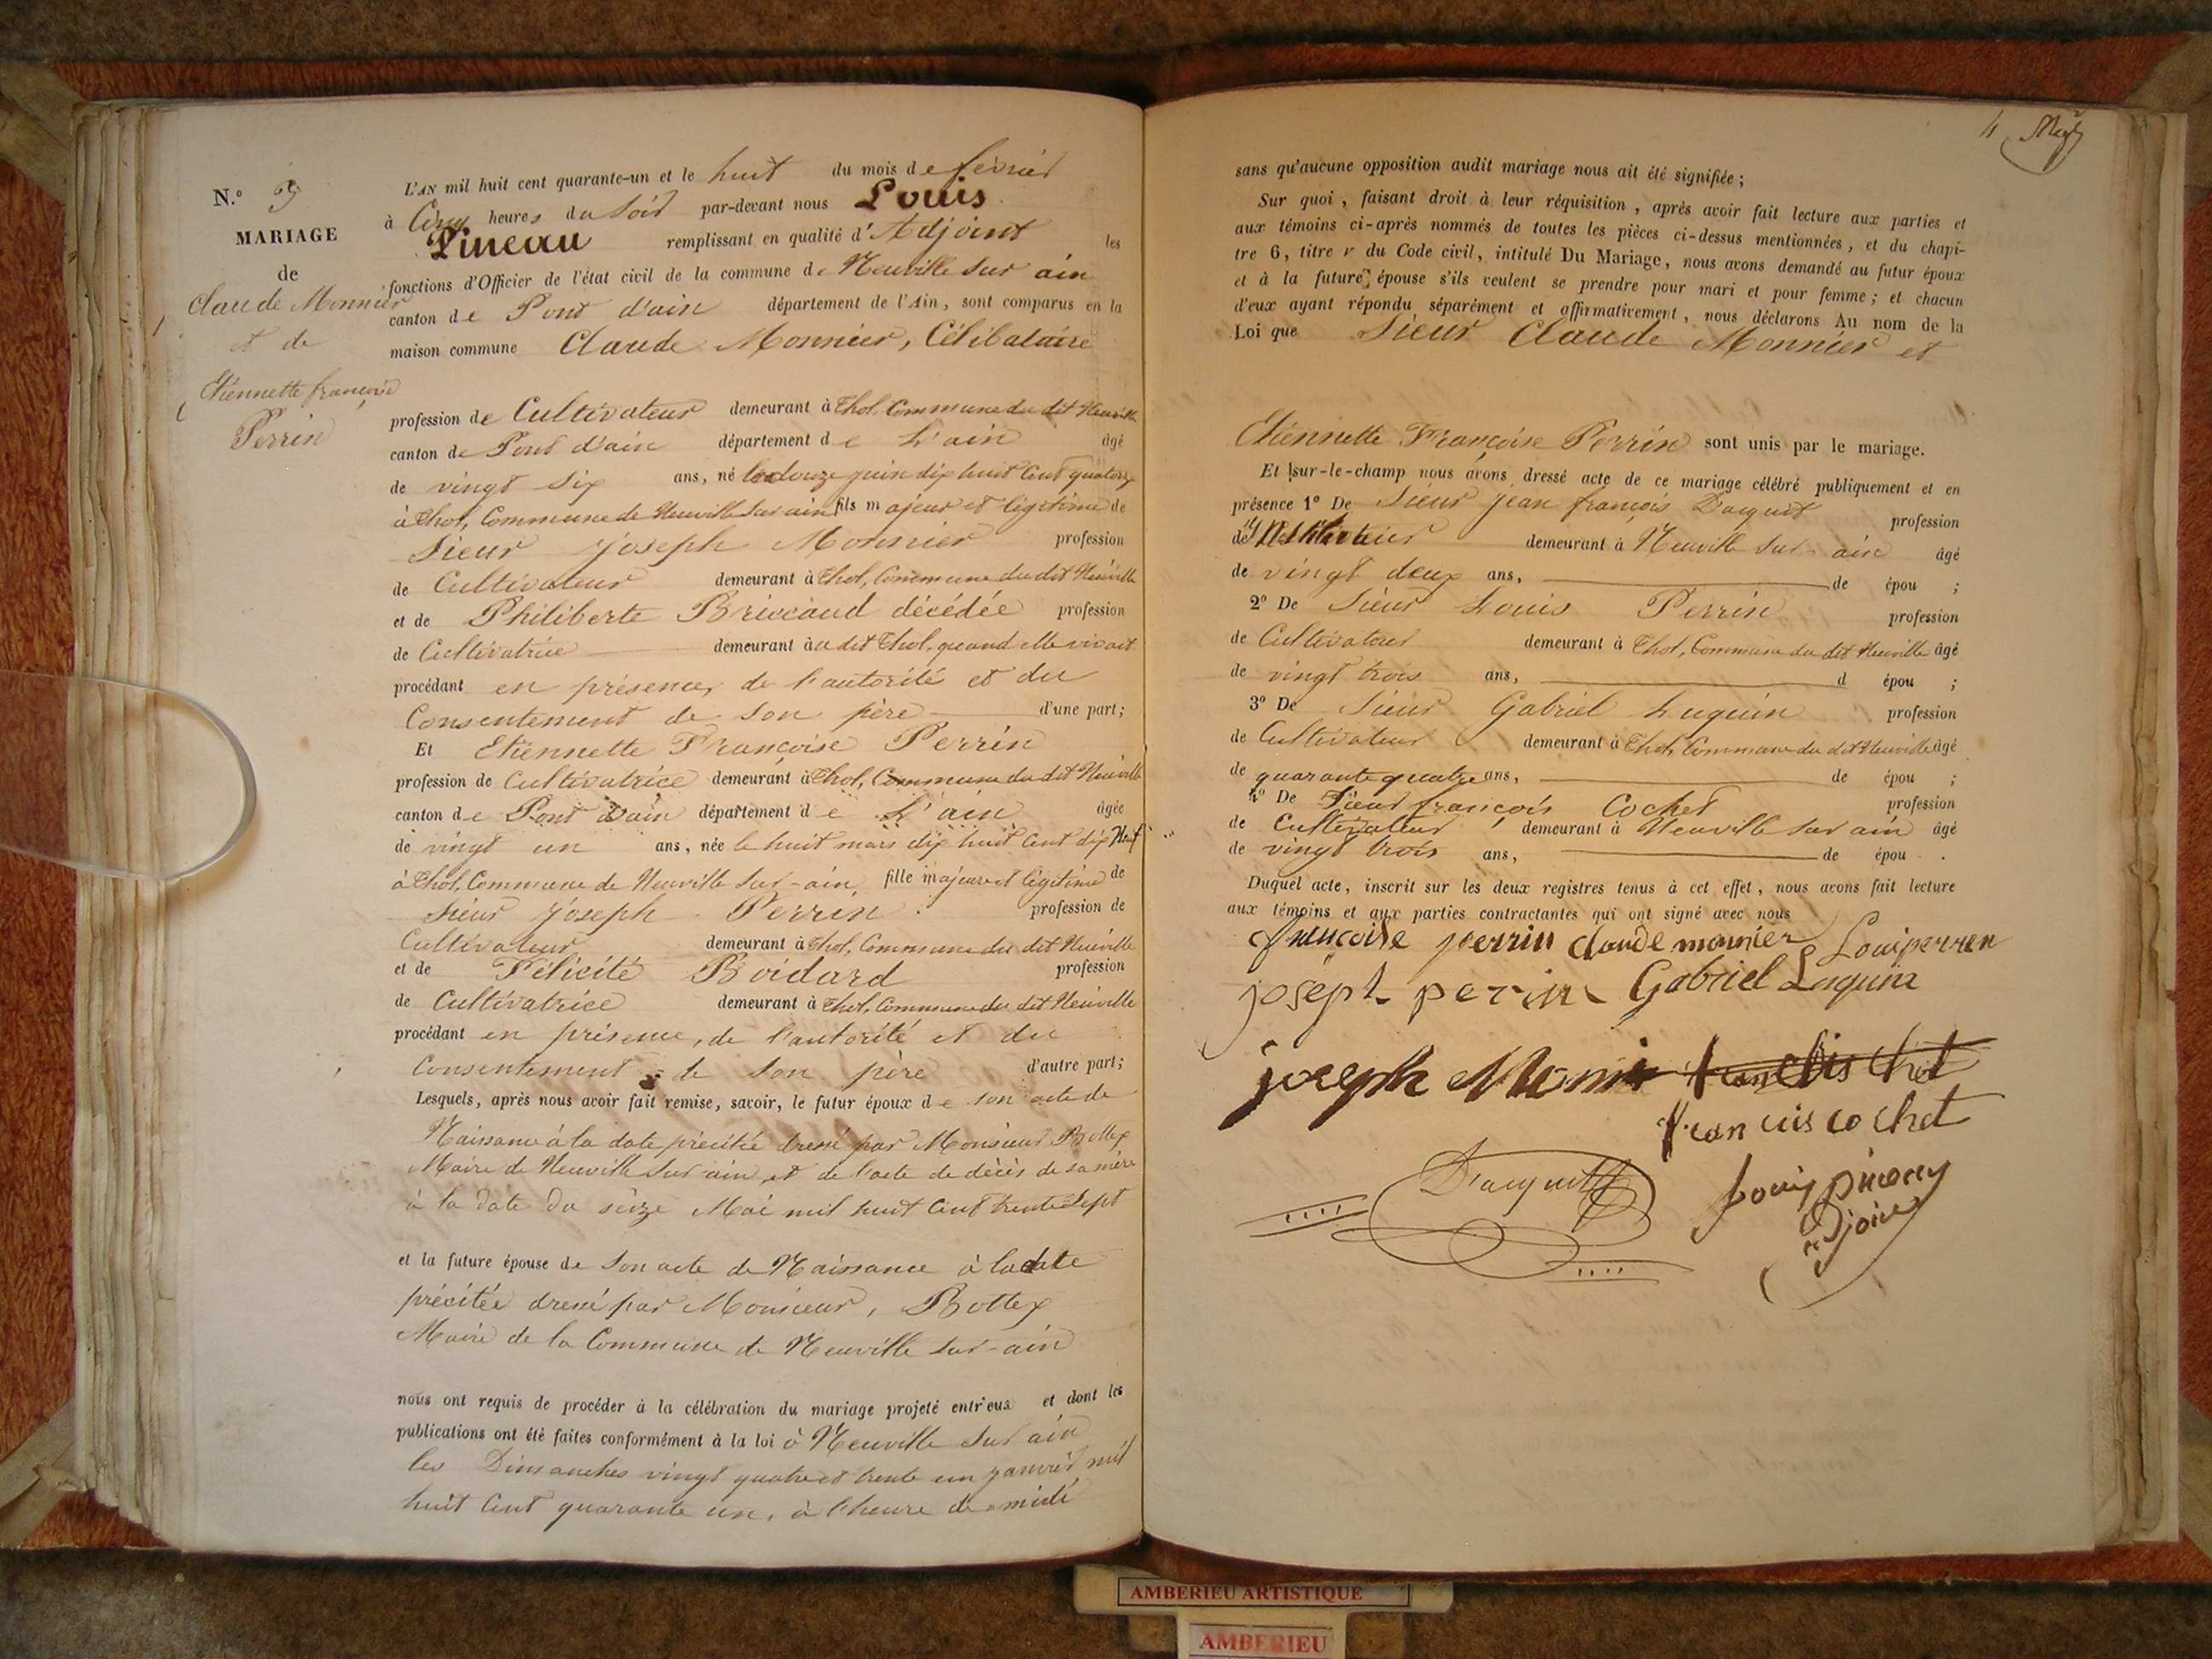 N.° 3
MARIAGE
de
Claude Monnier
et de
Etiennette françoise
Perrin
L'AN mil huit cent quarante-un et le huit du mois de février
à Cinq heures du Soir par-devant nous Louis
Pineau remplissant en qualité d'Adjoint les
fonctions d'Officier de l'état civil de la commune de Neuville sur ain
canton de Pont d'ain département de l'Ain, sont comparus en la
maison commune Claude Monnier, Célibataire
profession de Cultivateur demeurant à Thol, Commune du dit Neuville
canton de Pont d'ain département de L'ain âgé
de vingt six ans, né le douze juin dix huit Cent quatorze
à Thol, Commune de Neuville Sur ain fils majeur et légitime de
Sieur Joseph Monnier profession
de Cultivateur demeurant à Thol, Commune du dit Neuville
et de Philiberte Briccaud décédée profession
de Cultivatrice demeurant au dit Thol, quand elle vivait
procédant en présence, de l'autorité et du
Consentement de Son père d'une part;
Et Etiennette Françoise Perrin
profession de Cultivatrice demeurant à Thol, Commune du dit Neuville
canton de Pont d'ain département de L'ain âgée
de vingt un ans, née le huit mars dix huit Cent dix Neuf
à Thol, Commune de Neuville Sur-ain, fille majeure et légitime de
Sieur Joseph Perrin profession de
Cultivateur demeurant à Thol, Commune du dit Neuville
et de Félicité Boidard profession
de Cultivatrice demeurant à Thol, Commune du dit Neuville
procédant en présence, de l'autorité et du
Consentement de Son père d'autre part;
Lesquels, après nous avoir fait remise, savoir, le futur époux de son acte de
Naissance à la date précitée dressé par Monsieur Bottex
Maire de Neuville Sur ain, et de l'acte de décès de sa mère
à la date du seize Mai mil huit Cent trente Sept
et la future épouse de Son acte de Naissance à la date
précitée dressé par Monsieur, Bottex
Maire de la Commune de Neuville sur-ain
nous ont requis de procéder à la célébration du mariage projeté entr'eux et dont les
publications ont été faites conformément à la loi à Neuville Sur ain
les Dimanches vingt quatre et trente un janvier mil
huit Cent quarante un, à l'heure de midi
4
sans qu'aucune opposition audit mariage nous ait été signifiée;
Sur quoi, faisant droit à leur réquisition, après avoir fait lecture aux parties et
aux témoins ci-après nommés de toutes les pièces ci-dessus mentionnées, et du chapi-
tre 6, titre V du Code civil, intitulé Du Mariage, nous avons demandé au futur époux
et à la future épouse s'ils veulent se prendre pour mari et pour femme; et chacun
d'eux ayant répondu séparément et affirmativement, nous déclarons Au nom de la
Loi que Sieur Claude Monnier et
Etiennette Françoise Perrin sont unis par le mariage.
Et sur-le-champ nous avons dressé acte de ce mariage célébré publiquement et en
présence 1° De Sieur Jean françois Dacquit profession
de demeurant à Neuville Sur-ain âgé
de vingt deux ans, de épou ;
2° De Sieur Louis Perrin profession
de Cultivateur demeurant à Thol, Commune du dit Neuville âgé
de vingt trois ans, d épou ;
3° De Sieur Gabriel Luguin profession
de Cultivateur demeurant à Thol, Commune du dit Neuville âgé
de quarante quatre ans, de épou ;
4° De Sieur françois Cochet profession
de Cultivateur demeurant à Neuville Sur ain âgé
de vingt trois ans, de épou .
Duquel acte, inscrit sur les deux registres tenus à cet effet, nous avons fait lecture
aux témoins et aux parties contractantes qui ont signé avec nous
françoise perrin claude monnier Loui perren
joseph perrin Gabriel Luguin
joseph Monnier
francois cochet
Dacquit
AMBERIEU ARTISTIQUE
AMBERIEU